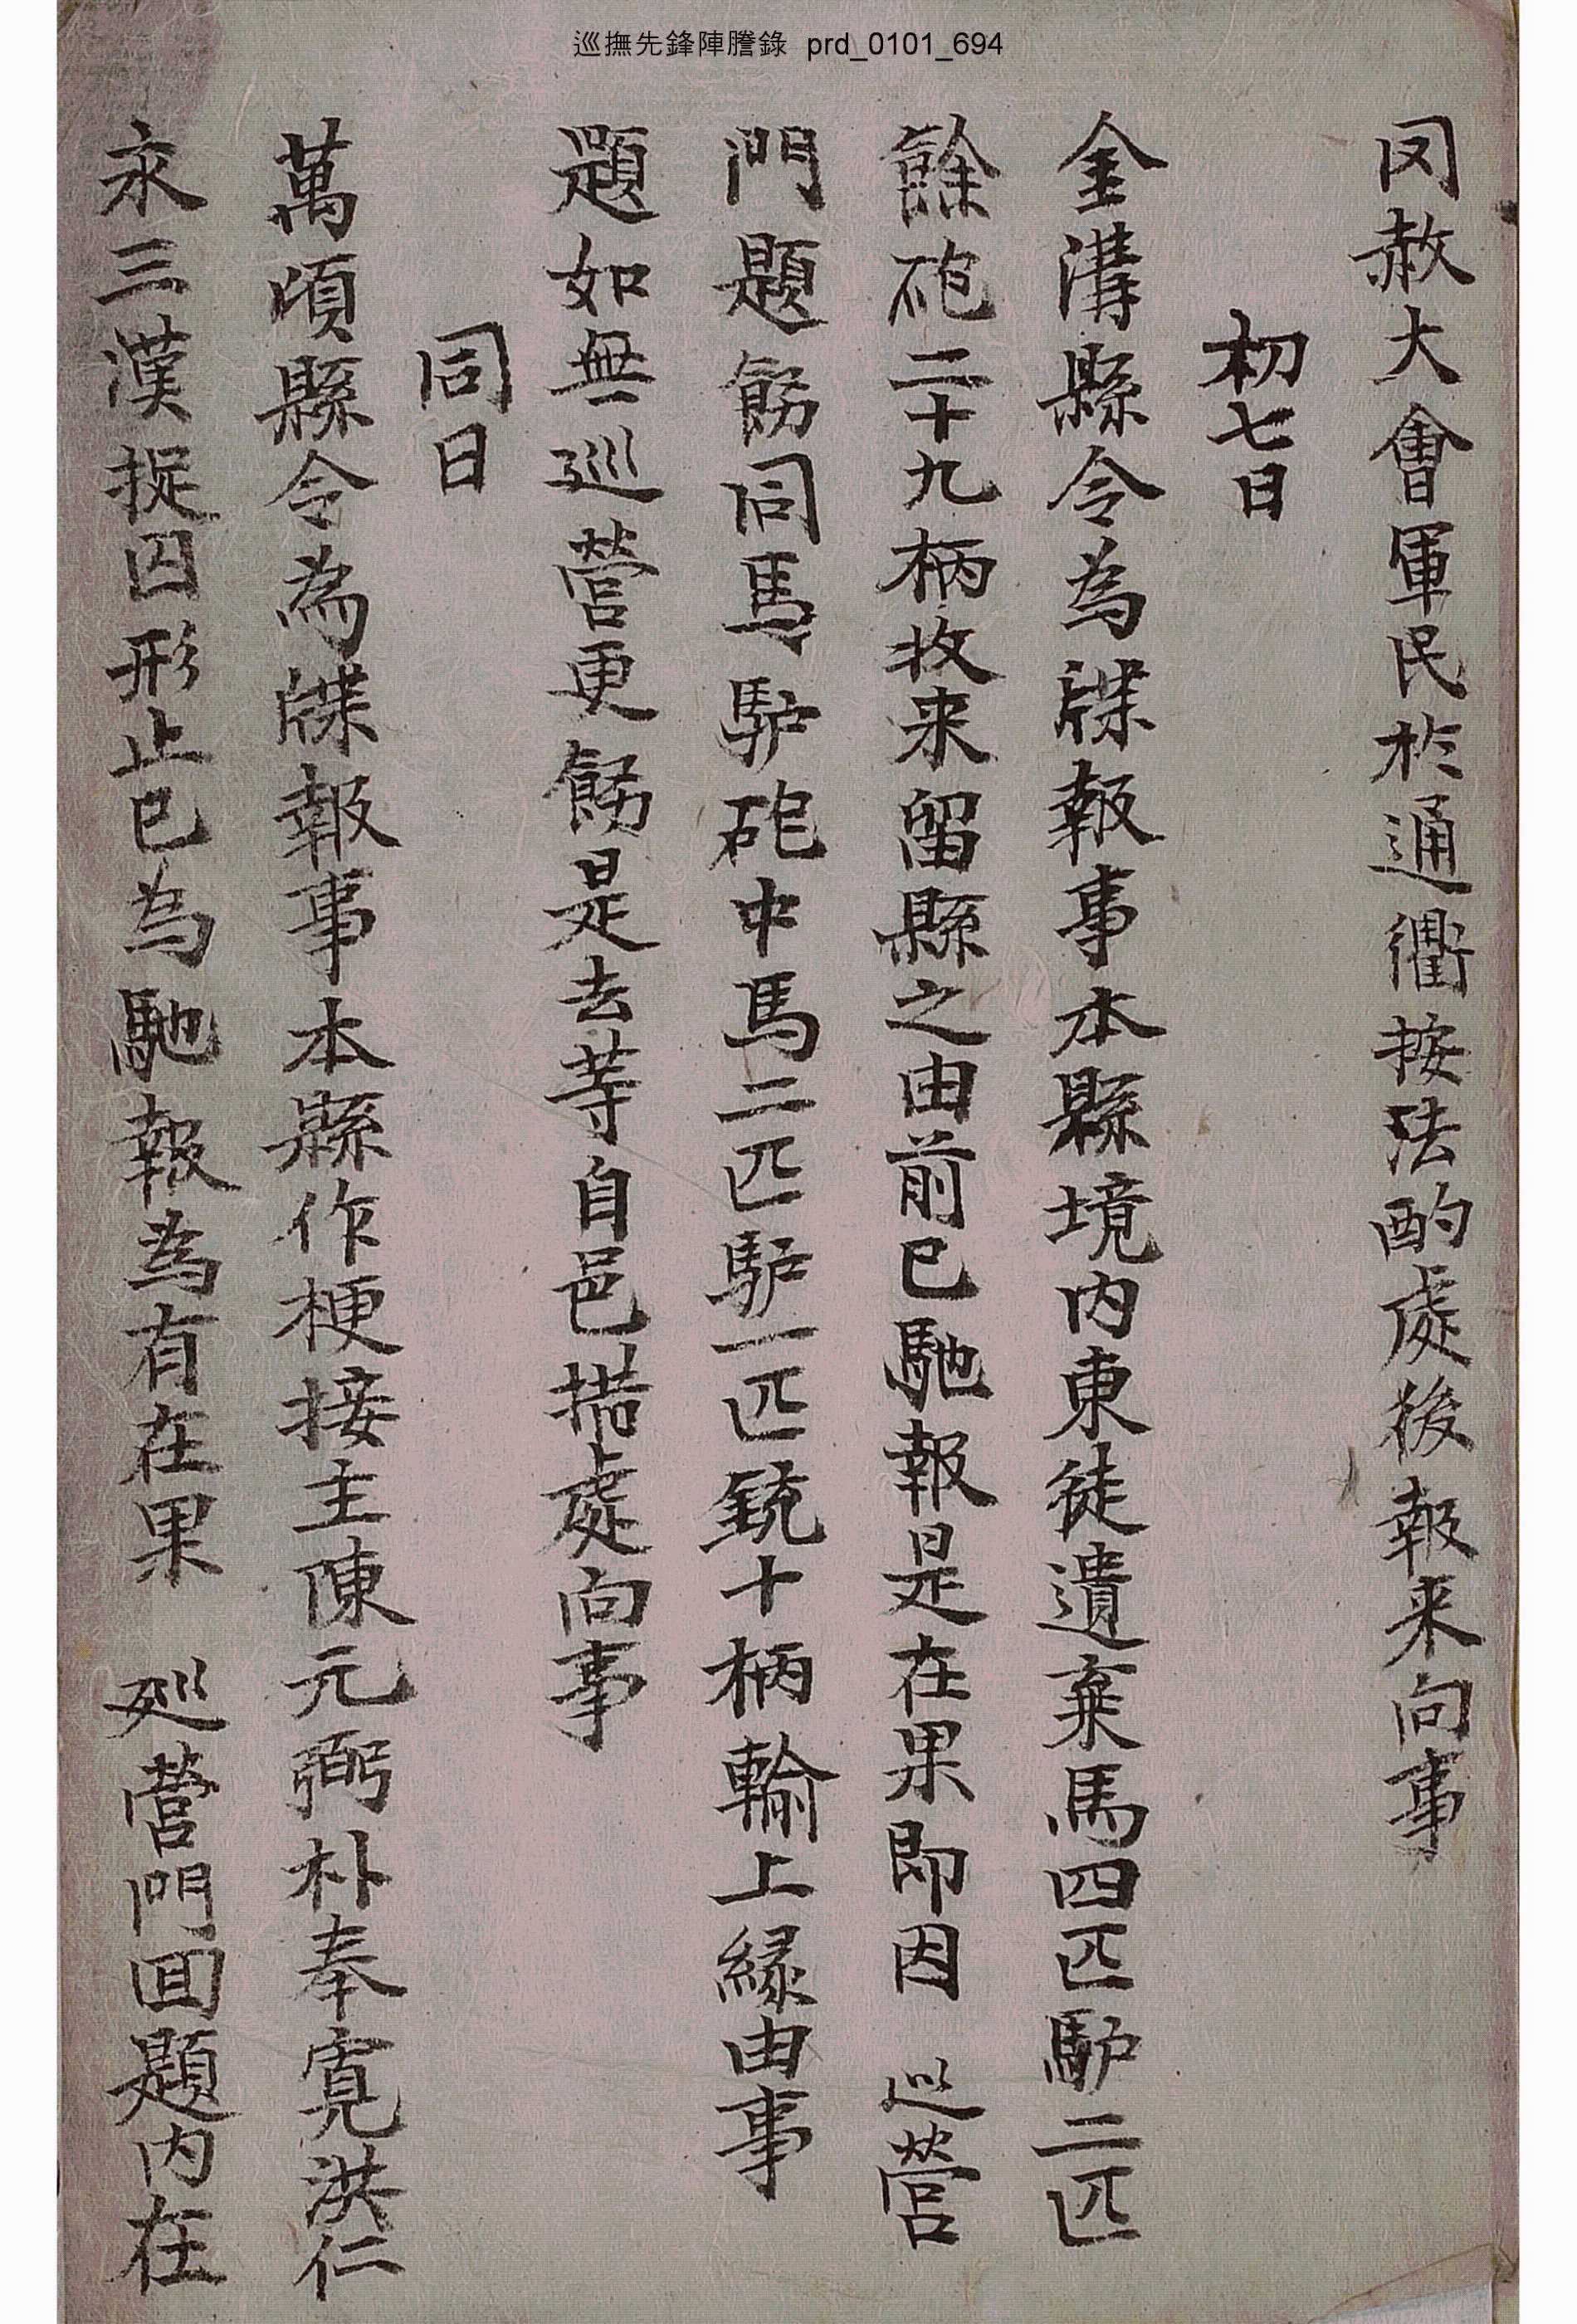 巡撫先鋒陣謄錄 prd_0101_694
罔赦大會軍民於通衢按法酌處後報来向事
初七日
金溝縣令為牒報事本縣境内東徒遺棄馬四匹馿二匹
餘砲二十九柄收来留縣之由前已馳報是在果即因 巡營
門題飭同馬馿砲中馬二匹馿一匹銃十柄輸上緣由事
題如無巡營更飭是去等自邑措處向事
同日
萬頃縣令為牒報事本縣作梗接主陳元弼朴奉寬洪仁
永三漢捉囚形止已為馳報為有在果 巡營門回題内在